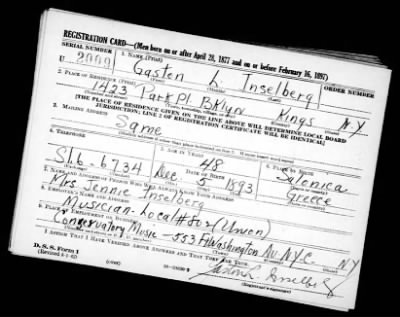 REGISTRATION CARD—(Men born on or after April 28, 1877 and on or before February 16, 1897)
SERIAL NUMBER 1. NAME (Print) ORDER NUMBER
U 2009 Gasten L. Inselberg
(First) (Middle) (Last)
2. PLACE OF RESIDENCE (Print)
1423 Park Pl. Bklyn Kings N.Y.
[THE PLACE OF RESIDENCE GIVEN ON THE LINE ABOVE WILL DETERMINE LOCAL BOARD
JURISDICTION; LINE 2 OF REGISTRATION CERTIFICATE WILL BE IDENTICAL]
3. MAILING ADDRESS
Same
4. TELEPHONE 5. AGE IN YEARS 6. PLACE OF BIRTH
48 Salonica
Sl. 6-6734 Dec. 5 1893 Greece
7. NAME AND ADDRESS OF PERSON WHO WILL ALWAYS KNOW YOUR ADDRESS
Mrs Jennie Inselberg
8. EMPLOYER'S NAME AND ADDRESS
Musician-Local #802 (Union)
9. PLACE OF EMPLOYMENT OR BUSINESS
Conservatory Music - 553 Ft Washington Av N.Y.C. N.Y.
I AFFIRM THAT I HAVE VERIFIED ABOVE ANSWERS AND THAT THEY ARE TRUE.
D. S. S. Form 1
(Revised 4-1-42) (over)
Gaston L. Inselberg
(Registrant's signature)